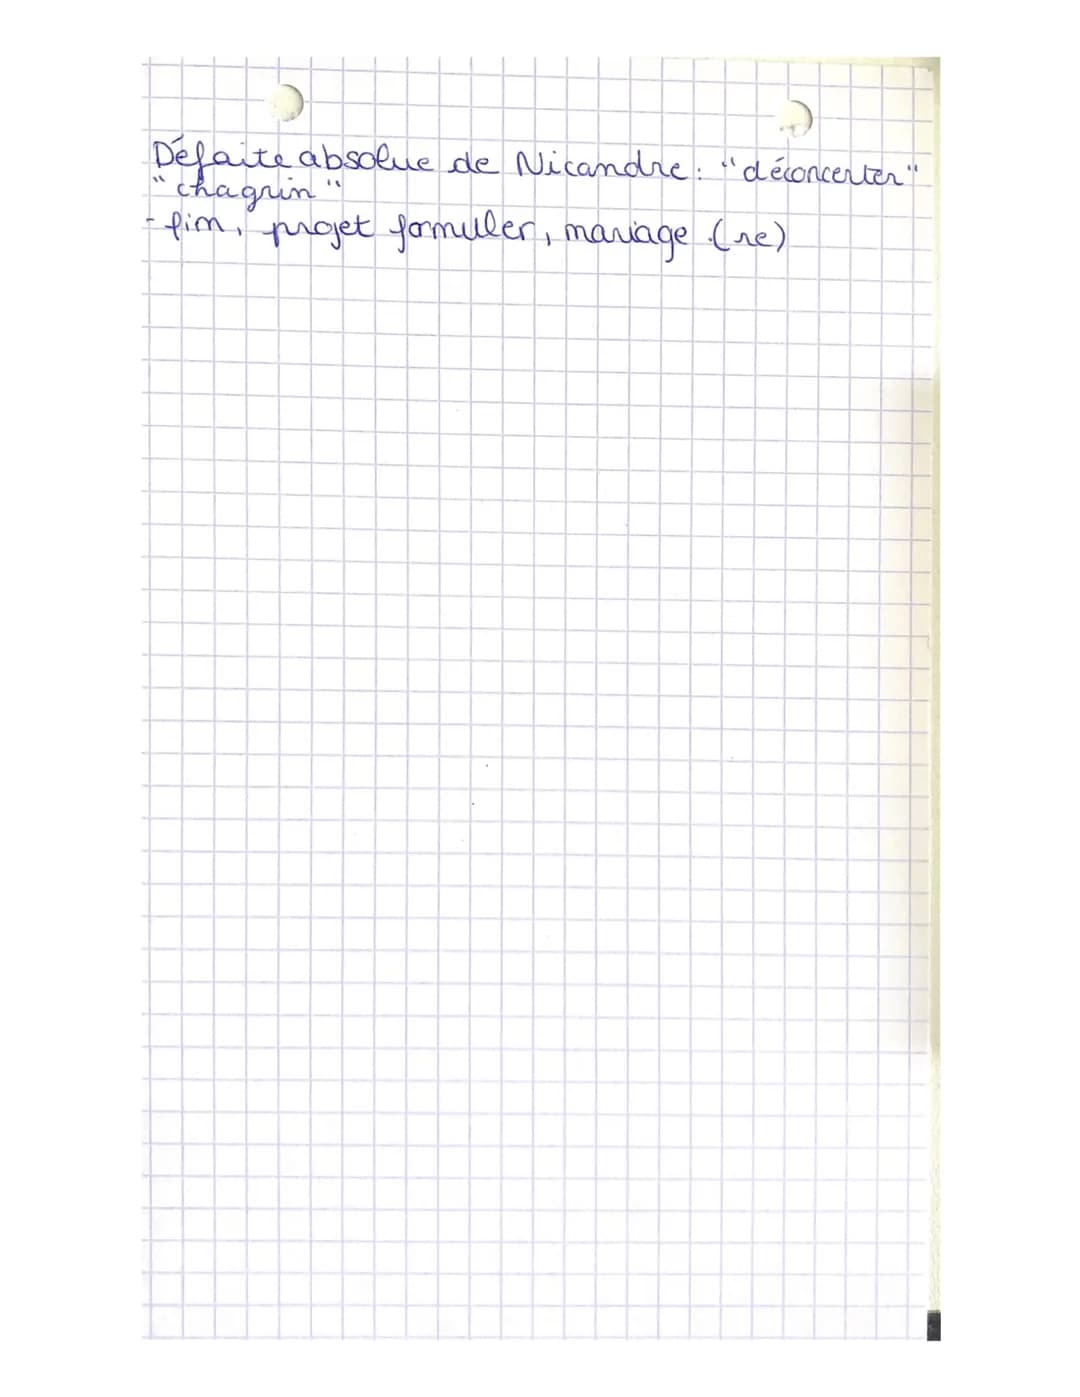 Défaite absolue de Nicandre : "déconcerter"
"chagrin"
- fim, projet formuler, mariage (re)